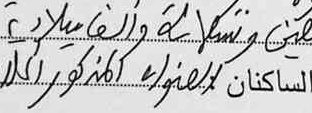 وتسعمائة وألف ميلادية
الساكنان بالعنوان المذكور أعلاه